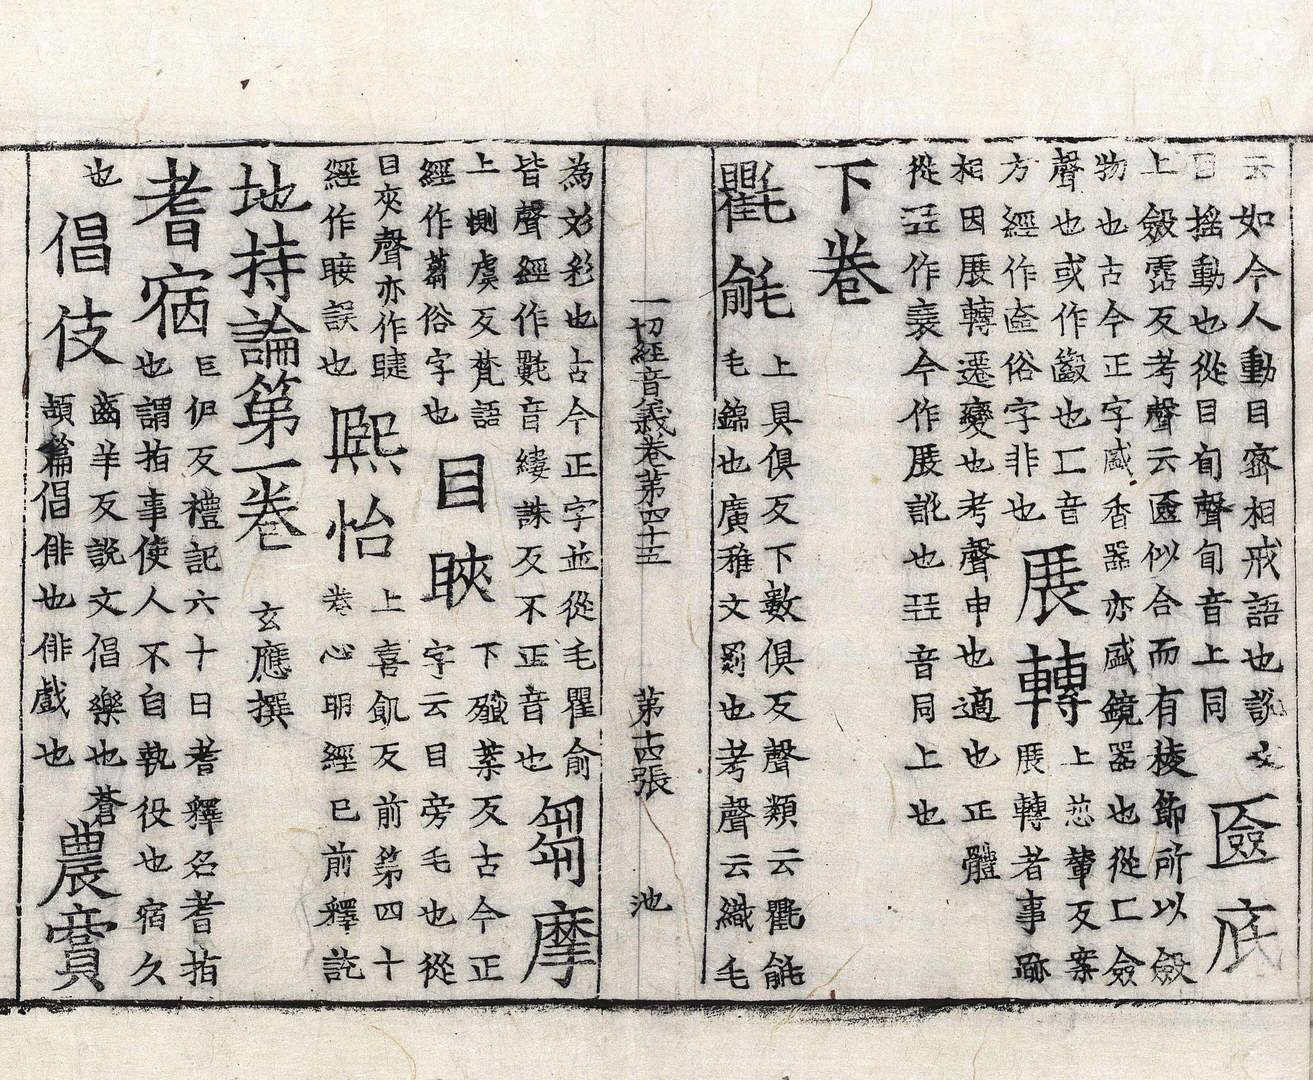 云如今人動目密相戒語也說文
目搖動也從目旬聲旬音上同
匳底
上斂霑反考聲云匳似合而有棱飾所以斂
物也古今正字盛香器亦盛鏡器也從匚僉
聲也或作籢也匚音
方經作奩俗字非也
展轉
上悊輦反案
展轉者事跡
相因展轉遷變也考聲申也適也正體
從㠭作襄今作展訛也㠭音同上也
下卷
氍毹
上具俱反下數俱反聲類云氍毹
毛錦也廣雅文罽也考聲云織毛
一切經音義卷第四十五 第十四張 池
為文彩也古今正字並從毛瞿俞
皆聲經作氀音縷誅反不正音也
芻摩
上惻虞反梵語
經作蒭俗字也
目䀹
下殲葉反古今正
字云目旁毛也從
目夾聲亦作睫
經作䀹誤也
熙怡
上喜飢反前第四十
卷心明經已前釋訖
地持論第一卷 玄應撰
耆宿
巨伊反禮記六十曰耆釋名耆指
也謂指事使人不自執役也宿久
也
倡伎
齒羊反說文倡樂也蒼
頡篇倡俳也俳戲也
農賨